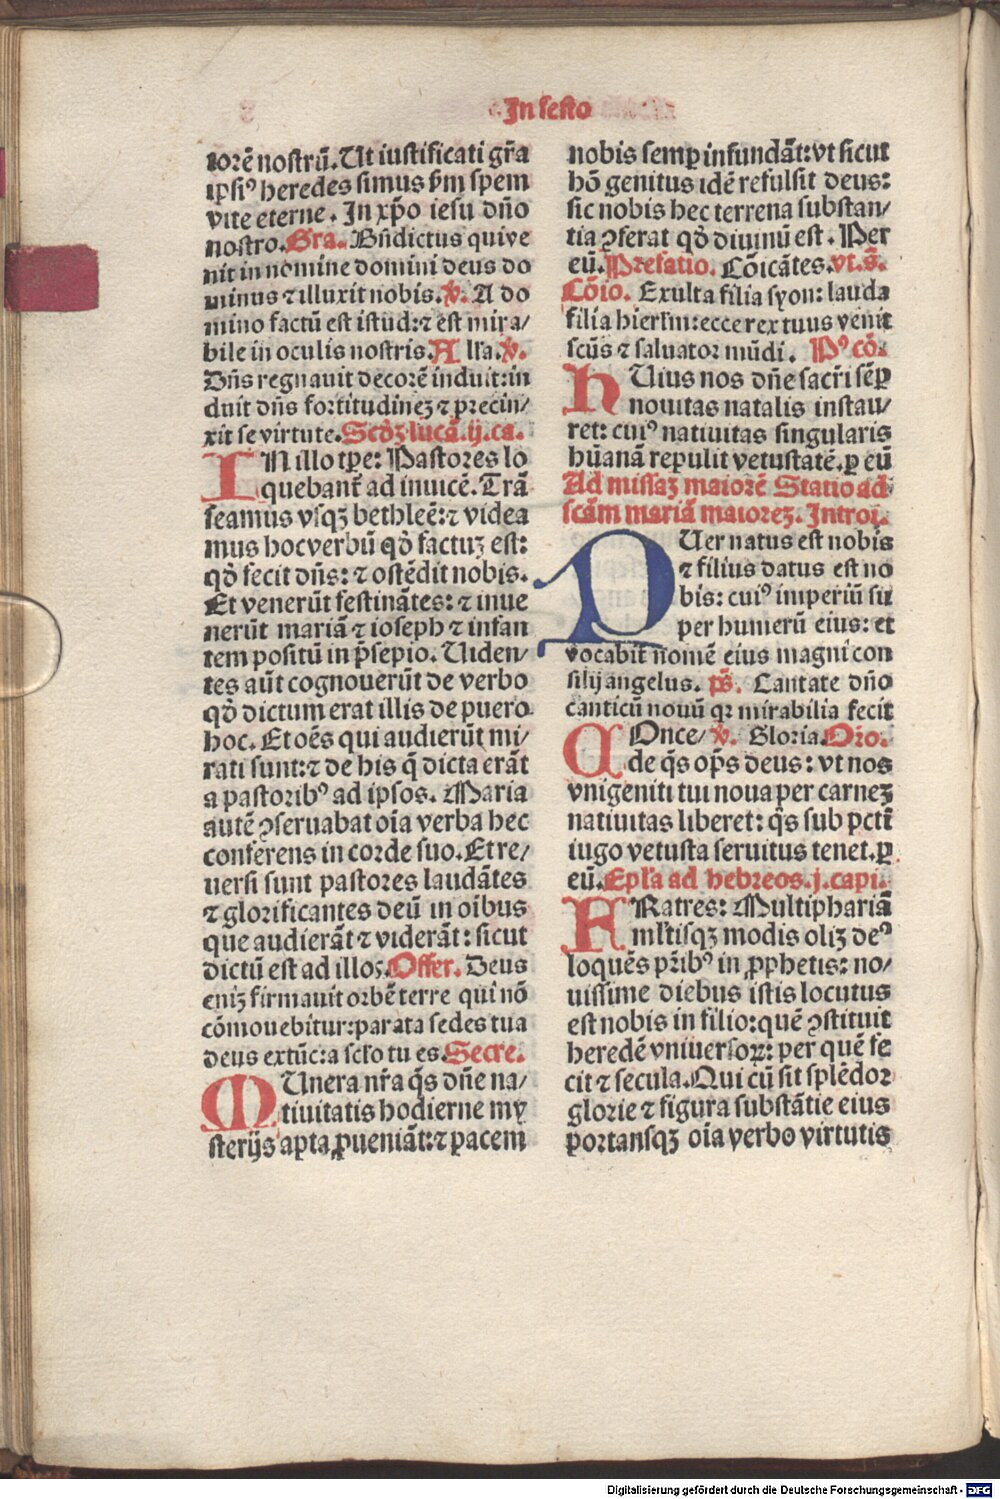 In festo
torē nostrū. Ut iustificati gr̄a
ipsiꝰ heredes simus s̄m spem
vite eterne. In xp̄o iesu dn̄o
nostro. Gra. Bn̄dictus qui ve
nit in nomine domini deus do
minus ⁊ illuxit nobis. ℣. A do
mino factū est istud: ⁊ est mira/
bile in oculis nostris. All'a. ℣.
Dn̄s regnauit decorē induit: in
duit dn̄s fortitudinez ⁊ p̱recin/
xit se virtute. Scd̄z lucā. ij. ca.
IN illo tp̄e: Pastores lo
quebant̄ ad inuicē. Trā
seamus vsqꝫ bethleē: ⁊ videa
mus hoc verbū qd̄ factuz est:
qd̄ fecit dn̄s: ⁊ ostēdit nobis.
Et venerūt festinātes: ⁊ inue
nerūt mariā ⁊ ioseph ⁊ infan
tem positū in p̄sepio. Uiden/
tes aūt cognouerūt de verbo
qd̄ dictum erat illis de puero
hoc. Et oēs qui audierūt mi/
rati sunt: ⁊ de his q̄ dicta erāt
a pastoribꝰ ad ipsos. Maria
autē ꝯseruabat oīa verba hec
conferens in corde suo. Et re/
uersi sunt pastores laudātes
⁊ glorificantes deū in oībus
que audierāt ⁊ viderāt: sicut
dictū est ad illos. Offer. Deus
eniꝫ firmauit orbē terre qui nō
cōmouebitur: parata sedes tua
deus extūc: a sc̄lo tu es. Secre.
MUnera nr̄a q̄s dn̄e na/
tiuitatis hodierne my
sterijs apta ꝓueniāt: ⁊ pacem
nobis semꝑ infundāt: vt sicut
hō genitus idē refulsit deus:
sic nobis hec terrena substan/
tia ꝯferat qd̄ diuinū est. Per
eū. Prefatio. Cōicātes. vt. s̄.
Cōio. Exulta filia syon: lauda
filia hierl̄m: ecce rex tuus venit
scūs ⁊ saluator mūdi. Pꝰ cō.
HUius nos dn̄e sacr̄i sēꝑ
nouitas natalis instau/
ret: cuiꝰ natiuitas singularis
hūanā repulit vetustatē. ꝑ eū
Ad missaꝫ maiorē Statio ad
scām mariā maiorez. Introi.
PUer natus est nobis
⁊ filius datus est no
bis: cuiꝰ imperiū su
per humerū eius: et
vocabit̄ nomē eius magni con
silij angelus. ps̄. Cantate dn̄o
canticū nouū qꝛ mirabilia fecit
COnce/ ℣. Gloria. Orō.
de q̄s op̄s deus: vt nos
vnigeniti tui noua per carneꝫ
natiuitas liberet: q̄s sub pcti
iugo vetusta seruitus tenet. ꝑ
eū. Epl'a ad hebreos. j. capi.
FRatres: Multiphariā
ml̄tisqꝫ modis oliꝫ deꝰ
loquēs pr̄ibꝰ in ꝓphetis: no/
uissime diebus istis locutus
est nobis in filio: quē ꝯstituit
heredē vniuersoꝝ: per quē fe
cit ⁊ secula. Qui cū sit splēdor
glorie ⁊ figura substātie eius
portansqꝫ oīa verbo virtutis
Digitalisierung gefördert durch die Deutsche Forschungsgemeinschaft - DFG